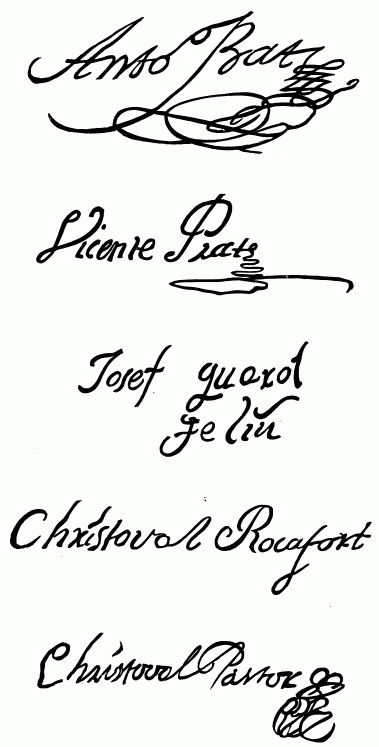 Antó Bats
Vicente Prats
Josef guarol
felíu
Christoval Rocafort
Christoval Pastor